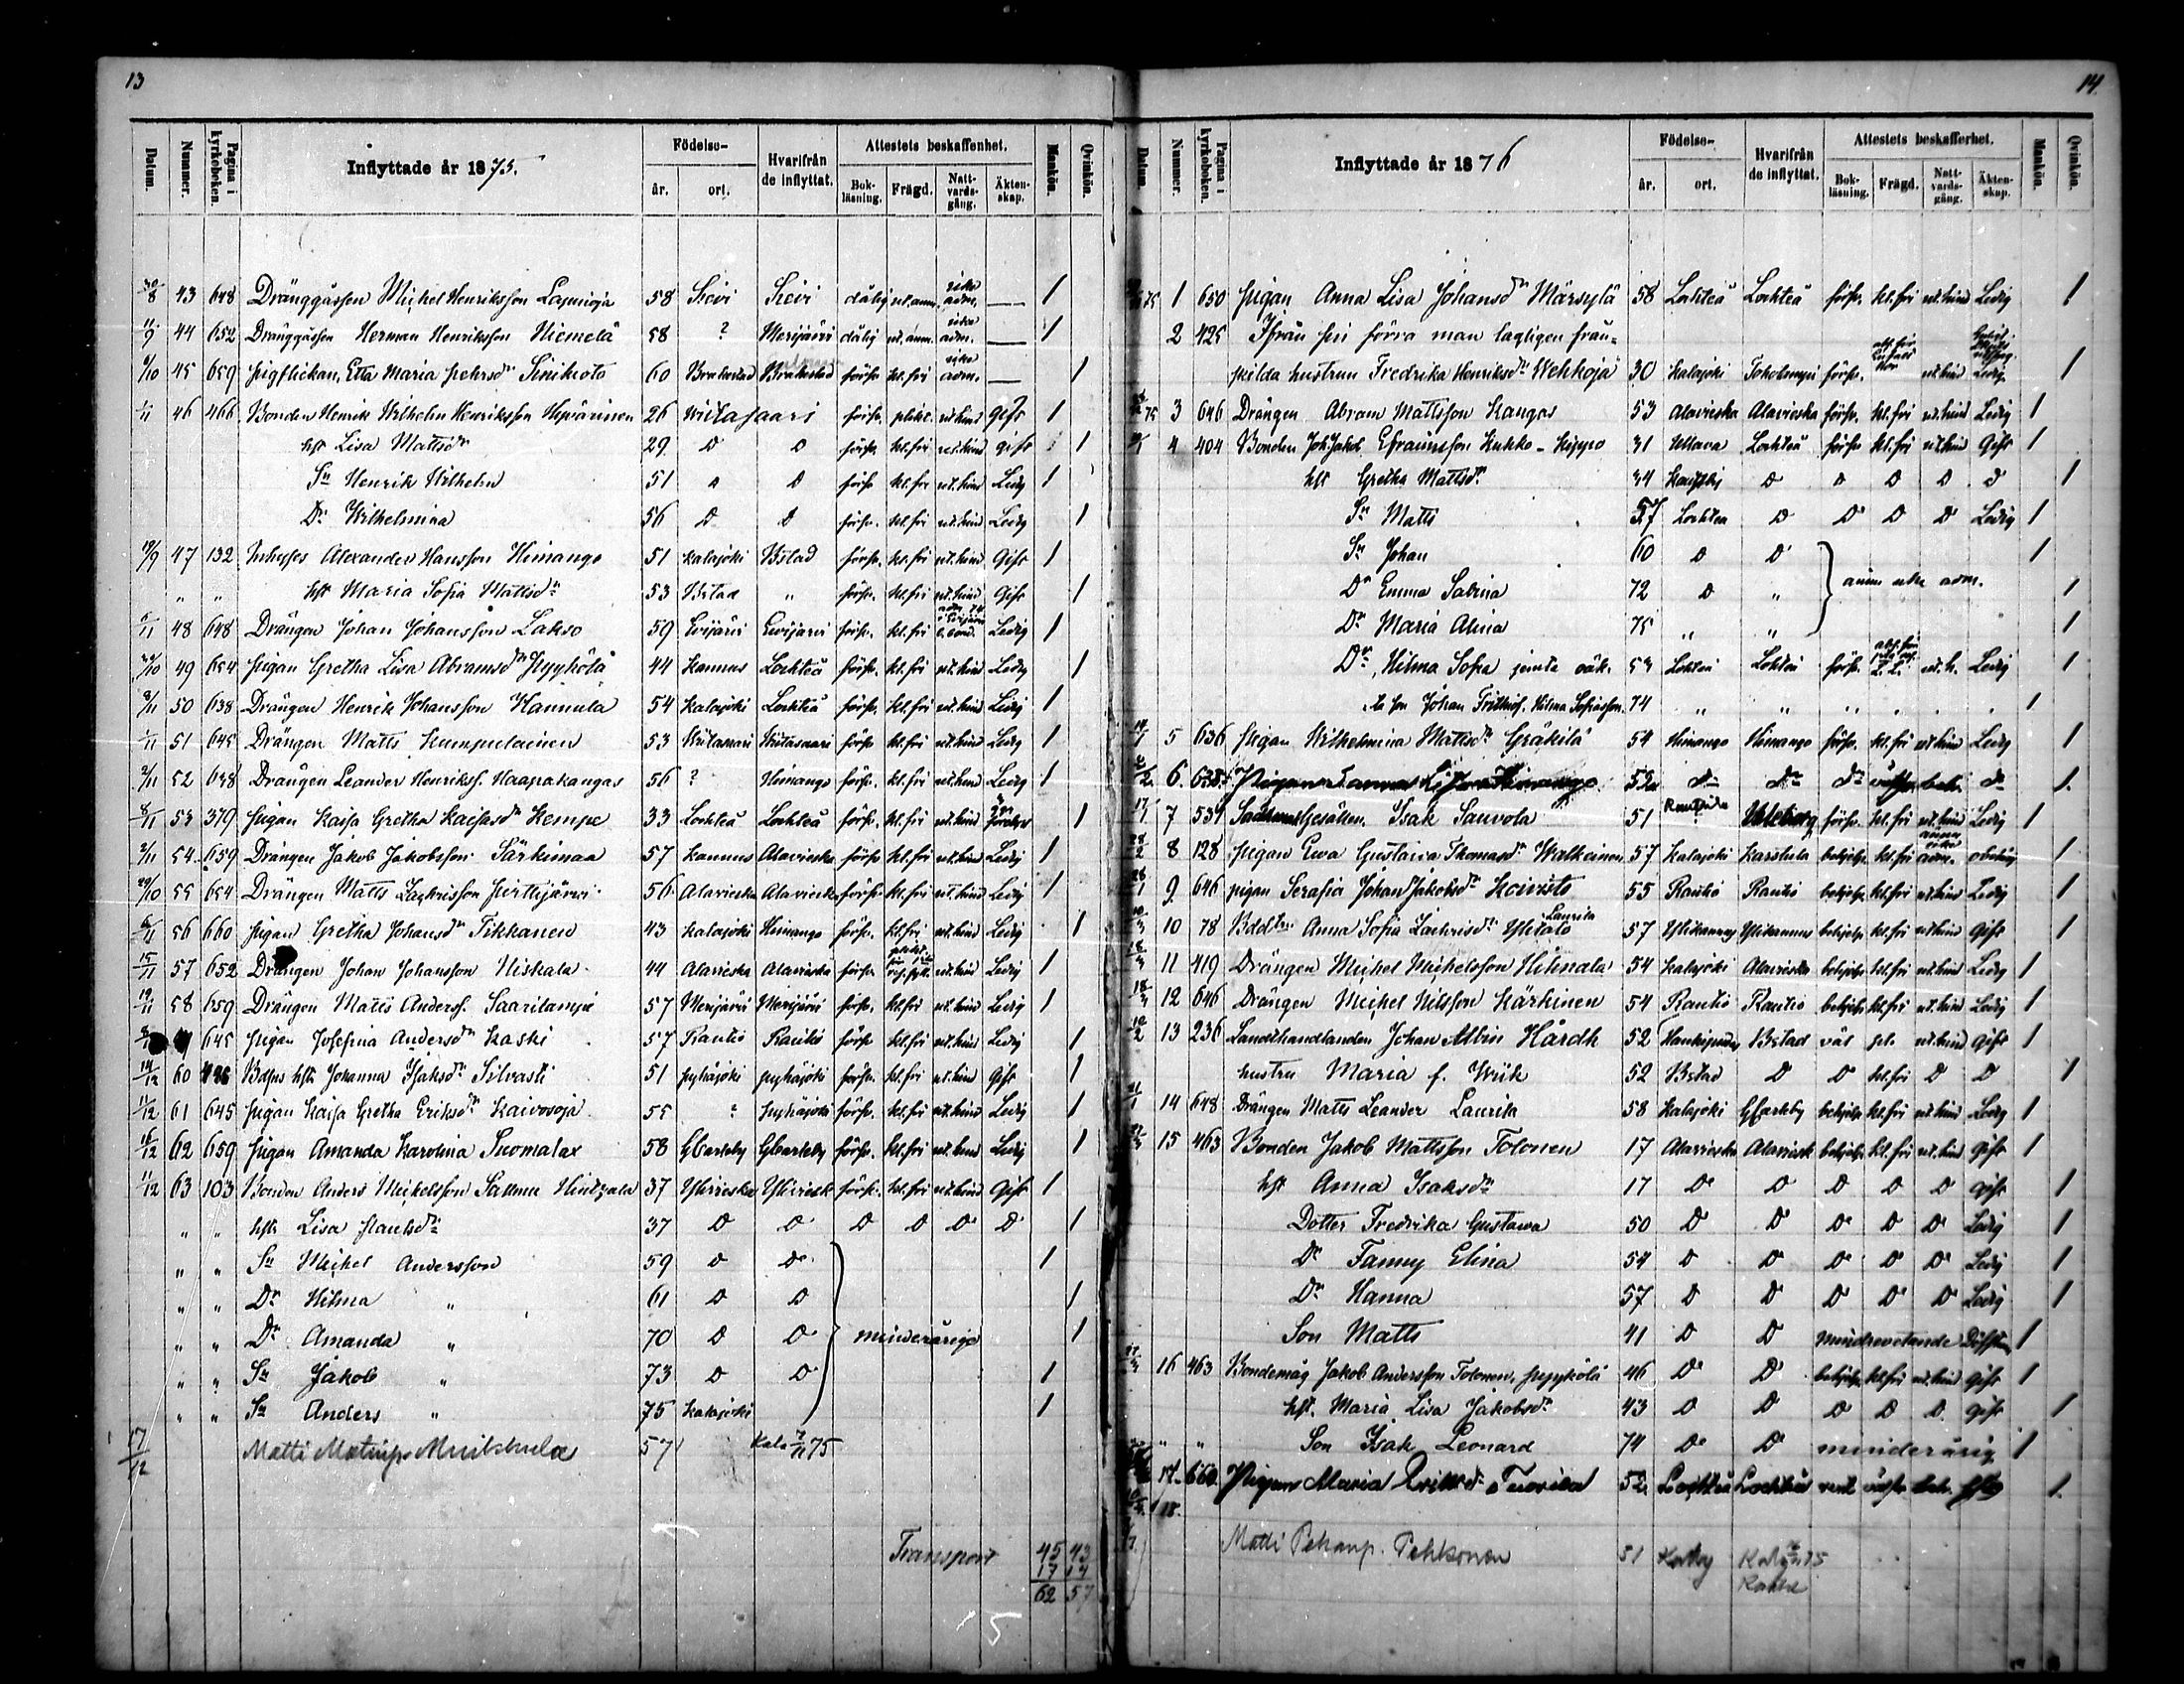 13
Datum. Nummer. Pagina i kyrkoboken. Inflyttade år 1875. Födelse- år. ort. Hvarifrån de inflyttat. Attestets beskaffenhet. Bok-läsning. Frägd. Natt-vards-gång. Äkten-skap. Mankön. Qvinkön.
30/8 43 648 Dränggåssen Michel Henriksson 58 Sievi Sievi dålig adm. — 1
11/9 44 652 Dränggåssen Herman Henriksson Niemelä 58 ? Merijärvi dålig adm. — 1
6/10 45 659 Pigflickan Etta Maria Pehrsdr Sinikoto 60 Brahestad Brahestad förswar kl.fri adm. — 1
1/11 46 466 Bonden Henrik Wilhelm Henriksson 26 Wiitasaari förs. nt.hind Gift 1
hst Lisa Mattsdr 29 D D förs. kl.fri nt.hind gift 1
Sn Henrik Wilhelm 51 D D förs. kl.fri nt.hind Ledig 1
Dr Wilhelmina 56 D D förs. kl.fri nt.hind Ledig 1
19/9 47 132 Inhyses Alexander Hansson Himango 51 Kalajoki Bstad förs. kl.fri nt.hind Gift 1
" " hst Maria Sofia Mattsdr 53 Bstad " förs. kl.fri nt.hind Gift 1
6/11 48 648 Drängen Johan Johansson Lakso 59 Evijärvi Evijärvi förs. kl.fri Ledig 1
49 654 Pigan Gretha Lisa Abramsdr Pyykölä 44 Kannus Lochteå förs. kl.fri nt.hind Ledig 1
2/11 50 638 Drängen Henrik Johansson Hannula 54 Kalajoki Lochteå förs. kl.fri nt.hind Ledig 1
1/11 51 645 Drängen Matts Kumpulainen 53 Wiitasaari Wiitasaari förs. kl.fri nt.hind Ledig 1
2/11 52 638 Drängen Leander Henrikss. Haapakangas 56 ? Himango förs. kl.fri nt.hind Ledig 1
8/11 53 379 Pigan Kaisa Gretha Kaisasdr Kempe 33 Lochteå Lochteå förs. kl.fri nt.hind 1
2/11 54 659 Drängen Jakob Jakobsson Särkimaa 57 Kannus Alavieska förs. kl.fri nt.hind Ledig 1
29/10 55 654 Drängen Matts Zachrisson Pirttijärvi 56 Alavieska Alavieska förs. kl.fri nt.hind Ledig 1
6/11 56 660 Pigan Gretha Johansdr Tikkanen 43 Kalajoki Himango förs. kl.fri nt.hind Ledig 1
15/11 57 652 Drängen Johan Johansson Niskala 44 Alavieska Alavieska förs. nt.hind Ledig 1
19/11 58 659 Drängen Matts Anderss. Saarilampi 57 Merijärvi Merijärvi förs. kl.fri nt.hind Ledig 1
645 Pigan Josefina Andersdr Kaski 57 Rautio Rautio förs. kl.fri nt.hind Ledig 1
14/12 60 Bdsns hst Johanna Isaksdr Silvasti 51 Pyhäjoki Pyhäjoki förs. kl.fri nt.hind Gift 1
11/12 61 645 Pigan Kaisa Gretha Eriksdr Kaivosoja 55 ? Pyhäjoki förs. kl.fri nt.hind Ledig 1
16/12 62 659 Pigan Amanda Karolina Suomalax 58 GCarleby GCarleby förs. kl.fri nt.hind Ledig 1
11/12 63 103 Bonden Anders Michelsson Salmu Hintzala 37 Ylivieska Ylivieska förs. kl.fri nt.hind Gift 1
" " hst Lisa Paulsdr 37 D D D D D D 1
" " Sn Michel Andersson 59 D D 1
" " Dr Hilma " 61 D D 1
" " Dr Amanda " 70 D D minderåriga 1
" " Sn Jakob " 73 D D 1
" " Sn Anders " 75 Kalajoki 1
17/12 Matti Matinp. Muikkula 57 Kala 75
Transport 45 43
17 14
62 57
14
Datum. Nummer. Pagina i kyrkoboken. Inflyttade år 1876 Födelse- år. ort. Hvarifrån de inflyttat. Attestets beskaffenhet. Bok-läsning. Frägd. Natt-vards-gång. Äkten-skap. Mankön. Qvinkön.
75 1 650 Pigan Anna Lisa Johansdr Märsylä 58 Lochteå Lochteå förs. kl.fri nt.hind Ledig 1
2 425 Ifrån sin förra man lagligen från-
skilda hustrun Fredrika Henriksdr Wehkoja 30 Kalajoki Toholampi förs. nt.hind Ledig 1
75 3 646 Drängen Abram Mattsson Kangas 53 Alavieska Alavieska förs. kl.fri nt.hind Ledig 1
4 404 Bonden Joh. Jakob Efraimsson Kukko-Keppo 31 Ullava Lochteå förs. kl.fri nt.hind Gift 1
hst Gretha Mattsdr 34 Kaustby D D D D D 1
Sn Matts 57 Lochteå D D D D Ledig 1
Sn Johan 60 D D 1
Dr Emma Sabina 72 D " ännu icke adm. 1
Dr Maria Alina 75 " " 1
Dr Hilma Sofia jemte oäk- 53 Lohteå Lohteå förs. nt.h. Ledig 1
ta son Johan Frithiof. Hilma Sofiasson. 74 " " 1
14/1 5 636 Pigan Wilhelmina Mattsdr Gräkilä 54 Himango Himango förs. kl.fri nt.hind Ledig 1
6. 638 52 dr 1.
17/1 7 534 Isak Sauvola 51 Uleåborg förs. kl.fri nt.hind Ledig 1
28/2 8 128 Pigan Ewa Gustawa Thomasdr Walkeinen 57 Kalajoki Karstula behjelp. kl.fri adm. 1
28/1 9 646 Pigan Serafia Johan Jakobsdr Koivisto 55 Rautio Rautio behjelp. kl.fri nt.hind Ledig 1
10 78 Anna Sofia Zachrisdr Ylitalo Laurila 57 Ylikannus Ylikannus behjelp. kl.fri nt.hind Gift 1
11 419 Drängen Michel Michelsson Hihnala 54 Kalajoki Alavieska behjelp. kl.fri nt.hind Ledig 1
12 646 Drängen Michel Nilsson Kärkinen 54 Rautio Rautio behjelp. kl.fri nt.hind Ledig 1
13 236 Landthandlanden Johan Albin Hårdh 52 Hankipudas Bstad väl nt.hind gift 1
hustru Maria f. Wiik 52 Bstad D D kl.fri D D 1
21/1 14 648 Drängen Matts Leander Laurila 58 Kalajoki GCarleby behjelp. kl.fri nt.hind Ledig 1
15 463 Bonden Jakob Mattsson Tolonen 17 Alavieska Alavieska behjelp. kl.fri nt.hind gift 1
hst Anna Isaksdr 17 D D D D D gift 1
Dotter Fredrika Gustawa 50 D D D D D Ledig 1
Dr Fanny Elina 54 D D D D D Ledig 1
Dr Hanna 57 D D D D D Ledig 1
Son Matts 41 D D mindrevetande 1
16 463 Bondemåg Jakob Andersson Tolonen, Pyykölä 46 D D behjelp. kl.fri nt.hind gift 1
hst. Maria Lisa Jakobsdr 43 D D D D D gift 1
" " Son Isak Leonard 74 D D minderårig 1
17. 660 Pigan Maria Eriksdr Tuorila 52. Lochteå Lochteå 1.
18.
Matti Pekanp. Pehkonen 51